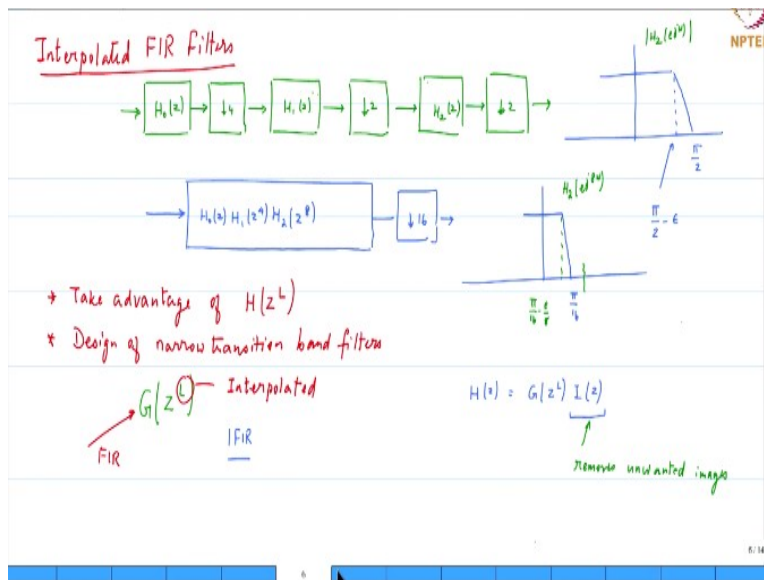 NPTEL
Interpolated FIR Filters
|H₂(e^{jω})|
→ H₀(z) → ↓4 → H₁(z) → ↓2 → H₂(z) → ↓2 →
π/2
π/2 - ε
H₂(e^{j8ω})
→ H₀(z) H₁(z⁴) H₂(z⁸) ↓16 →
π/16 - ε/8 π/16
* Take advantage of H(z^L)
* Design of narrow transition band filters
G(z^L) Interpolated
H(z) = G(z^L) I(z)
FIR
IFIR
removes unwanted images
6/14
6